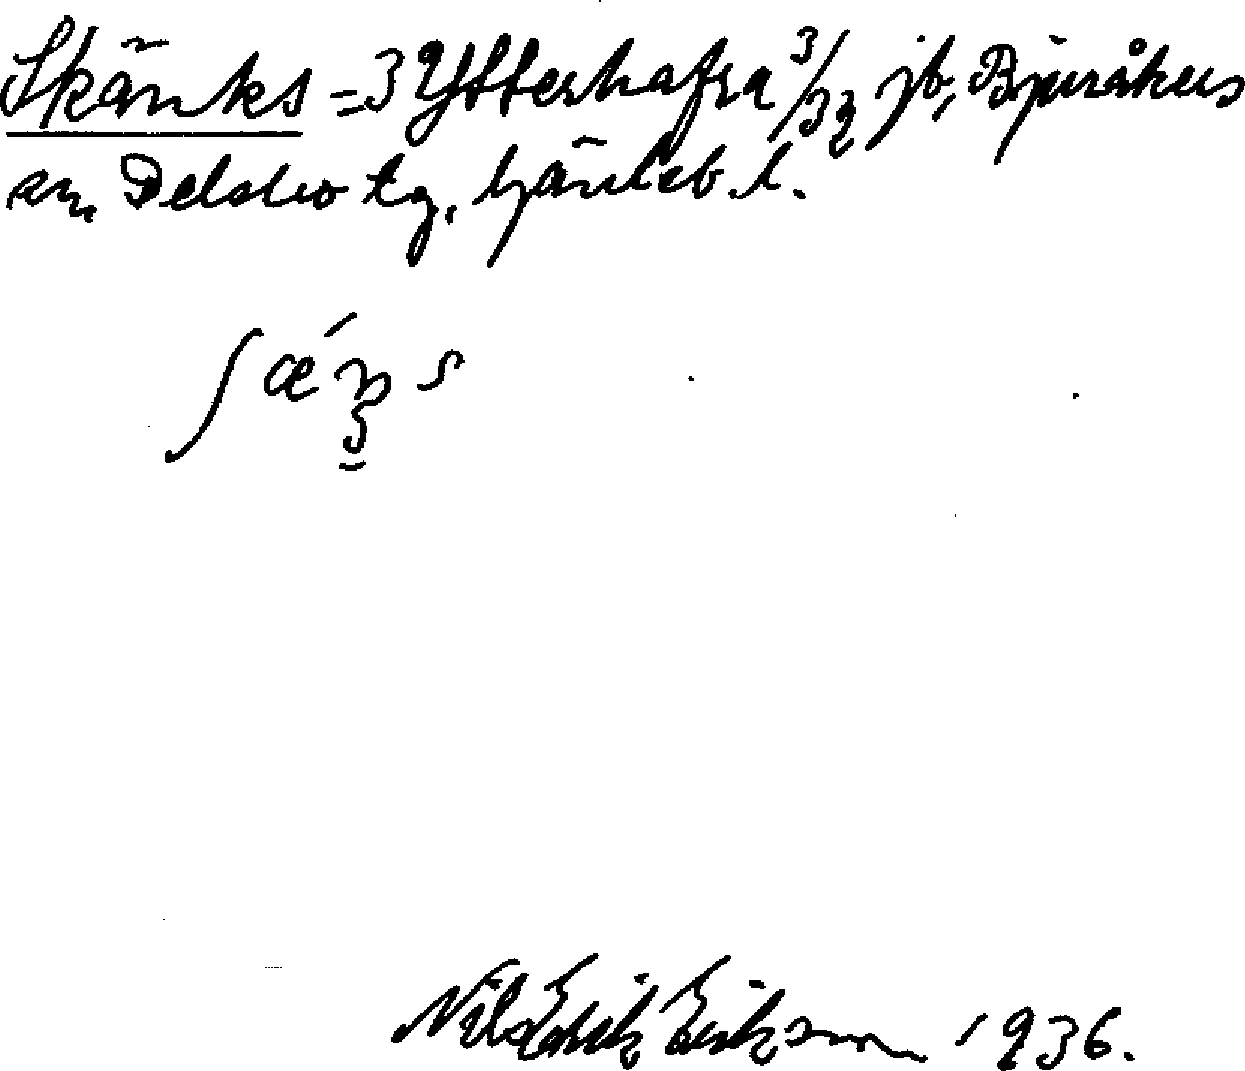 Skänks = 3 Ytterhafra 3/32 jb, Bjuråkers
sn, Delsbo tg, Gävleb. l.
ʃǽŋs
Nils Erik Eriksson 1936.